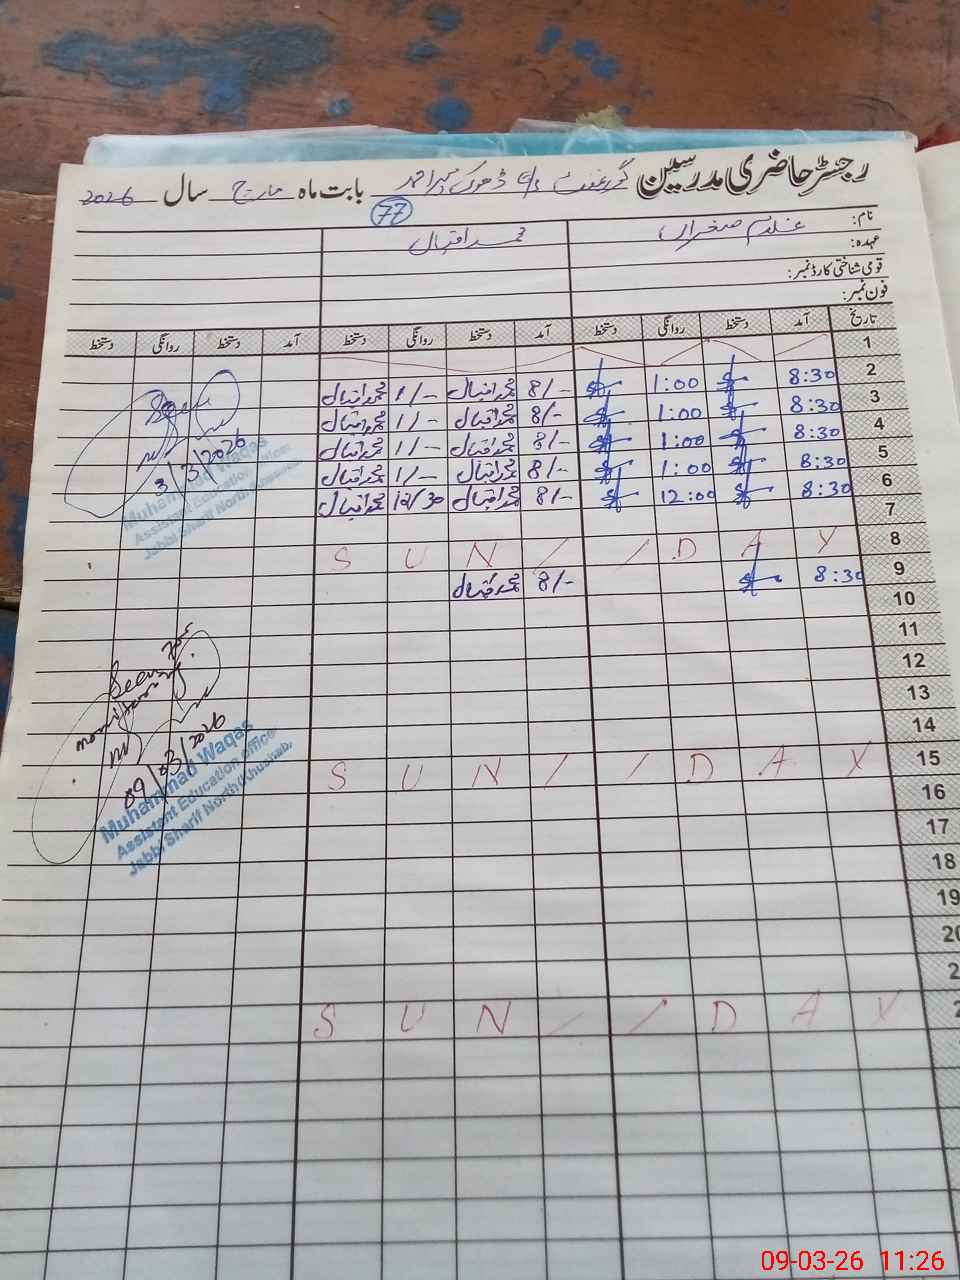 رجسٹر حاضری مدرسین گورنمنٹ p/s ڈھوک پیرا احمد بابت ماہ مارچ سال 2026
77
نام: غلام صغراں محمد اقبال
عہدہ:
قومی شناختی کارڈ نمبر:
فون نمبر:
تاریخ آمد دستخط روانگی دستخط آمد دستخط روانگی دستخط آمد دستخط روانگی دستخط
1
2 8:30 1:00 8/- محمد اقبال 1/- محمد اقبال
3 8:30 1:00 8/- محمد اقبال 1/- محمد اقبال
4 8:30 1:00 8/- محمد اقبال 1/- محمد اقبال
5 8:30 1:00 8/- محمد اقبال 1/- محمد اقبال
6 8:30 12:00 8/- محمد اقبال 12/30 محمد اقبال
7
8 S U N / / D A Y
9 8:30 8/- محمد اقبال
10
11
12
13
14
15 S U N / / D A Y
16
17
18
19
20
2
2 S U N / / D A Y
Seen
3/3/2026
Muhammad Waqas
Assistant Education officer
Jabbi Sharif North (Khushab)
Seen for
monitoring
09/03/2026
Muhammad Waqas
Assistant Education office
Jabbi Sharif North (Khushab)
09-03-26 11:26